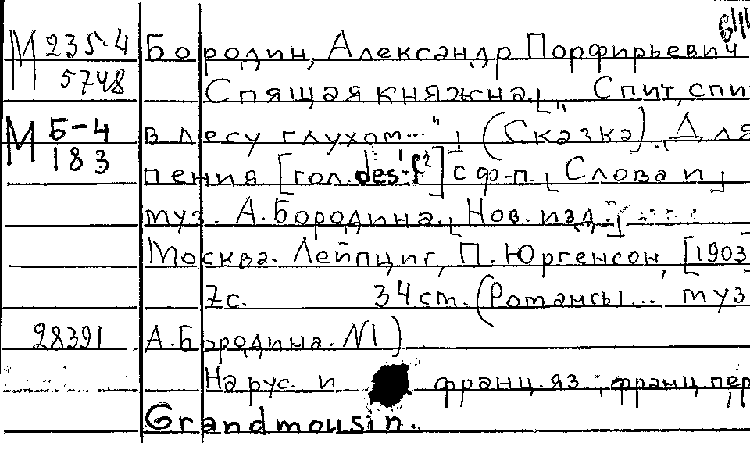 М 235-4 Бородин, Александр Порфирьевич
5748 Спящая княжна. „Спит, спи
М Б-4 в лесу глухом..." (Сказка). Для
183 пения [гол. des'-f²] с ф-п. Слова и
муз. А. Бородина. Нов. изд.
Москва. Лейпциг, П. Юргенсон, [1903
7с. 34 ст. (Романсы... муз
28391 А. Бородина. N1)
На рус. и франц. яз; франц. пер
Grandmousin.